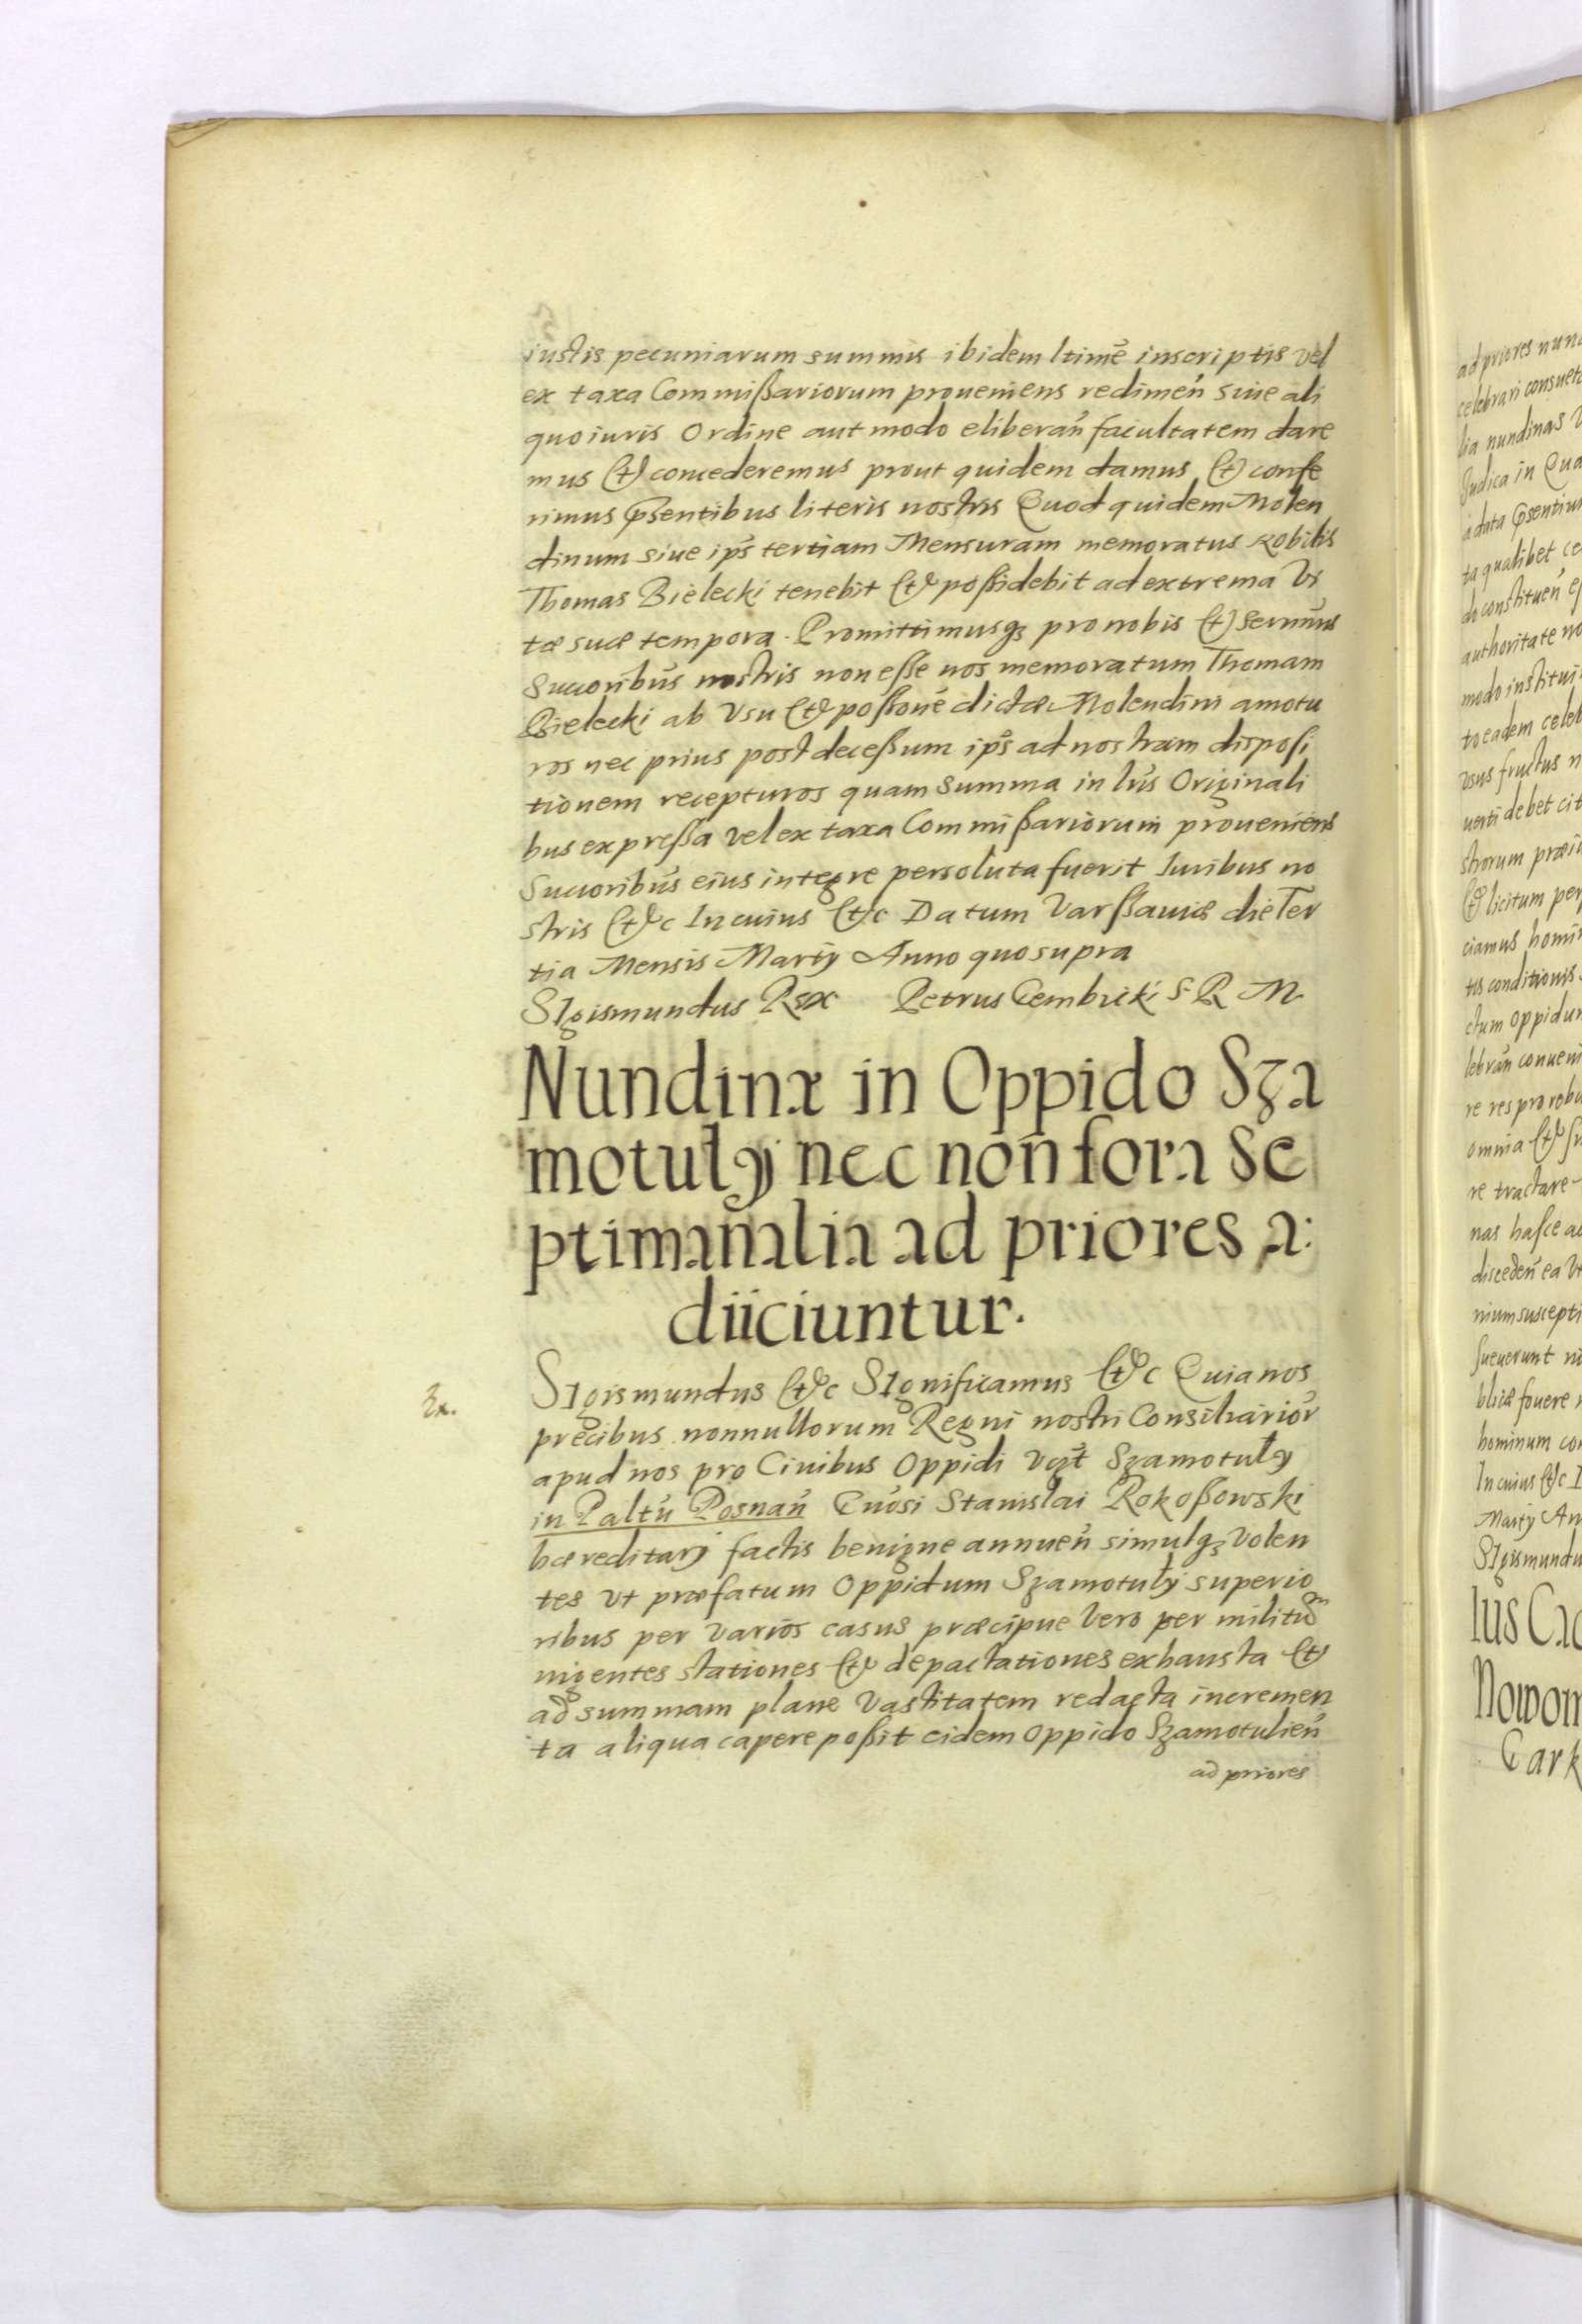 iustis pecuniarum summis ibidem ltimē inscriptis vel
ex taxa Commißariorum proueniens redimeń siue ali
quo iuris Ordine aut modo eliberań facultatem dare
mus et concederemus prout quidem damus et confe
rimus p̃sentibus literis nostris Quod quidem Molen
dinum siue ips̃ tertiam Mensuram memoratus Nobilis
Thomas Bielecki tenebit et poßidebit ad extrema Vi
tæ suæ tempora. Promittimusq3 pro nobis et Sernmis
Succoribus nostris non eße nos memoratum Thomam
Bielecki ab Vsu et poßione dictæ Molendini amotu
ros nec prius post deceßum ips̃ ad nostram disposi
tionem recepturos quam summa in lris Originali
bus expreßa vel ex taxa Commißariorum proueniens
Succoribus eius integre persoluta fuerit Iuribus no
stris etc In cuius etc Datum Varßauiæ die Ter
tia Mensis Martij Anno quo supra
SIgismundus Rex Petrus Gembicki S R M
Nundinæ in Oppido Sza
motuly nec non fora Se
ptimanalia ad priores a:
diiciuntur.
Ex.
SIgismundus etc SIgnificamus etc Quia nos
precibus nonnullorum Regni nostri Consiliarior
apud nos pro Ciuibus Oppidi Szamotuły
in Paltū Posnań Gnosi Stanislai Rokoßowski
hæreditarij factis benigne annueń simulq3 volen
tes vt præfatum Oppidum Szamotuły superio
ribus per varios casus præcipue vero per militū
nigentes stationes et depactationes exhausta et
ad summam plane Vastitatem redacta incremen
ta aliqua capere poßit eidem Oppido Szamotulień
ad priores
ad priores nun
celebrari consuet
lia nundinas
Iudica in Qua
a data p̃sentiu
ta qualibet ce
do constitueń
authoritate no
modo institui
to eadem celeb
vsus fructus n
uerti debet cit
strorum præiu
et licitum per
ciamus homin
tis conditionis
ctum Oppidum
lebrań conueni
re res pro robu
omnia et
re tractare
nas hasce ac
discedeń ea Vt
nium suscepti
sueuerunt ni
blicæ fouere
hominum con
In cuius etc
Martij An
SIgismundu
Ius Cad
Nowom
Gark